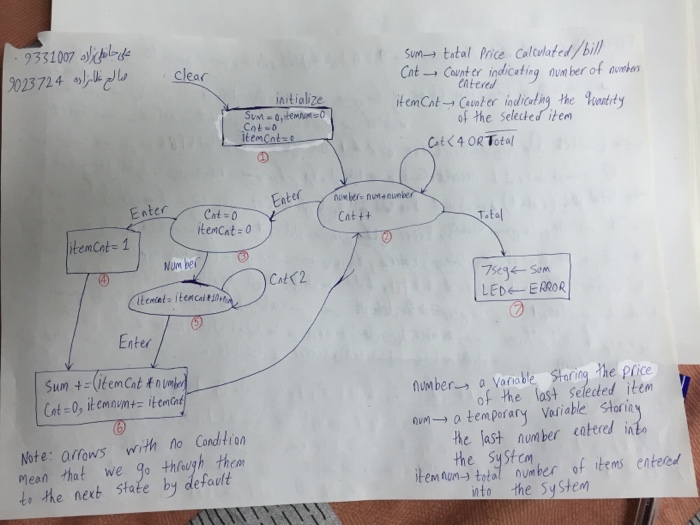 9331007
9023724
Clear
sum → total Price Calculated/bill
Cnt → Counter indicating number of numbers
entered
itemCnt → Counter indicating the Quantity
of the selected item
initialize
Sum = 0, itemnum = 0
Cnt = 0
itemCnt = 0
①
Cnt < 4 OR Total
number = num + number
Cnt ++
②
Enter
Total
Cnt = 0
itemCnt = 0
③
Enter
itemCnt = 1
④
Number
Cnt < 2
⑤
7seg ← Sum
LED ← ERROR
⑦
Enter
Sum += (itemCnt * number)
Cnt = 0, itemnum += itemCnt
⑥
number → a variable storing the price
of the last selected item
num → a temporary variable storing
the last number entered into
the system
itemnum → total number of items entered
into the system
Note: arrows with no Condition
mean that we go through them
to the next state by default